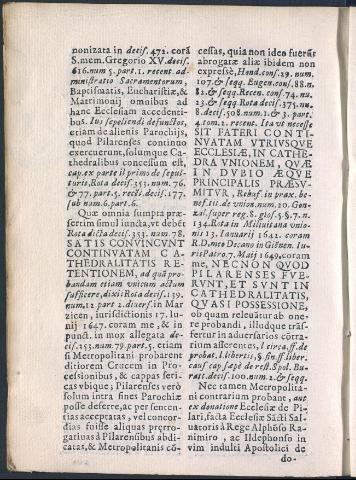 nonizata in decis. 472. corã
S. mem. Gregorio XV. decis.
616. num 5. part. 1. recent. ad
ministratio Sacramentorum,
Baptismatis, Eucharistiæ, &
Matrimonij omnibus ad
hanc Ecclesiam accedenti-
bus. Ius sepeliendi defunctos,
etiam de alienis Parochijs,
quod Pilarenses continuo
exercuerunt, solumque Ca-
thedralibus concessum est,
cap. ex parte il primo de sepul-
turis, Rota decis. 353. num. 76.
& 77. part. 5. rect. decis. 177.
sub num. 6. part. 6.
Quæ omnia sumpta præ-
sertim simul iuncta, vt docet
Rota dicta decis. 353. num. 78.
SATIS CONVINCVNT
CONTINVATAM CA-
THEDRALITATIS RE-
TENTIONEM, ad quã pro-
bandam etiam vnicum actum
sufficere, dixit Rota decis. 139.
num, 12. part 2. diuers. in Mar
zicen, iurisdictionis 17. Iu-
nij 1647. coram me, & in
punct. in mox allegata de-
cis. 153. num. 79. part. 5. etiam
si Metropolitani probarent
ditiorem Crucem in Pro-
cessionibus, & cappas seri-
cas vbique; Pilarenses verò
solum intra fines Parochiæ
posse deferre, ac per senten-
tias acceptatas, vel concor-
dias fuisse aliquas prȩrro-
gatiuas à Pilarensibus abdi-
catas, & Metropolitanis cõ-
cessas, quia non ideo fuerũt
abrogatæ aliæ ibidem non
expressè, Hond. cons. 29. num.
107. & seqq. Eugen. cons. 88. n.
82. & seqq. Recen. cons. 74. nu.
23. & seqq Rota decis. 374. nu.
8. decis. 508. num. 1. & 3. part.
4. tom. 1. recent. Ita vt necesse
SIT FATERI CONTI-
NVATAM VTRIVSQVE
ECCLESIÆ, IN CATHE-
DRA VNIONEM, QVÆ
IN DVBIO ÆQVE
PRINCIPALIS PRÆSV-
MITVR, Rebuf. in prax. be-
nef. tit. de vnion. num. 20. Gon-
zal. super reg. 8. glos. 5. §. 7. n.
134. Rota in Militana vnio-
nis 13. Ianuarij 1642. coram
R. D. meo Decano in Giẽnen. Iu-
ris Patro. 7. Maij 1649, coram
me, NECNON QVOD
PILARENSES FVE-
RVNT, ET SVNT IN
CATHEDRALITATIS,
QVASI POSSESSIONE,
ob quam releuãtur ab one-
re probandi, illudque trãs-
fertur in aduersarios cõtra-
rium asserentes, l. circa. ff. de
probat. l. libertis, § fin. ff. liber.
caus. cap. sæpè de rest. Spol. Bu-
rat. decis. 100. num. 2. & seqq.
Nec tamen Metropolita-
ni contrarium probant, aut
ex donatione Ecclesiæ de Pi-
lari, facta Ecclesiæ Sãcti Sal-
uatoris à Rege Alphõso Ra-
nimiro, ac Ildephonso in
vim indulti Apostolici de
do-